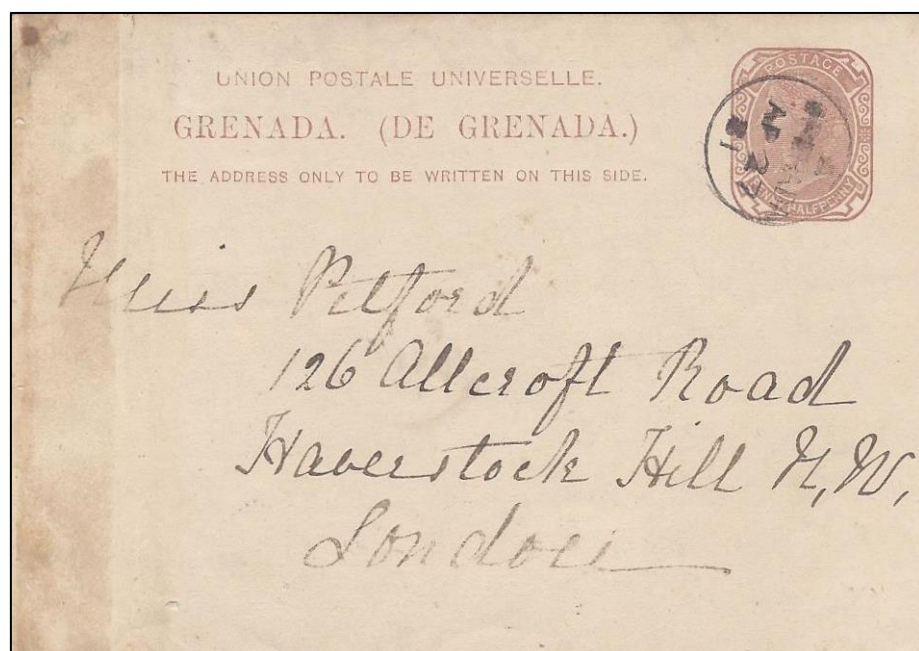 UNION POSTALE UNIVERSELLE.
GRENADA. (DE GRENADA.)
THE ADDRESS ONLY TO BE WRITTEN ON THIS SIDE.
POSTAGE
HALFPENNY
AP 27
81
Miss Pilford
126 Allcroft Road
Haverstock Hill N,W,
London